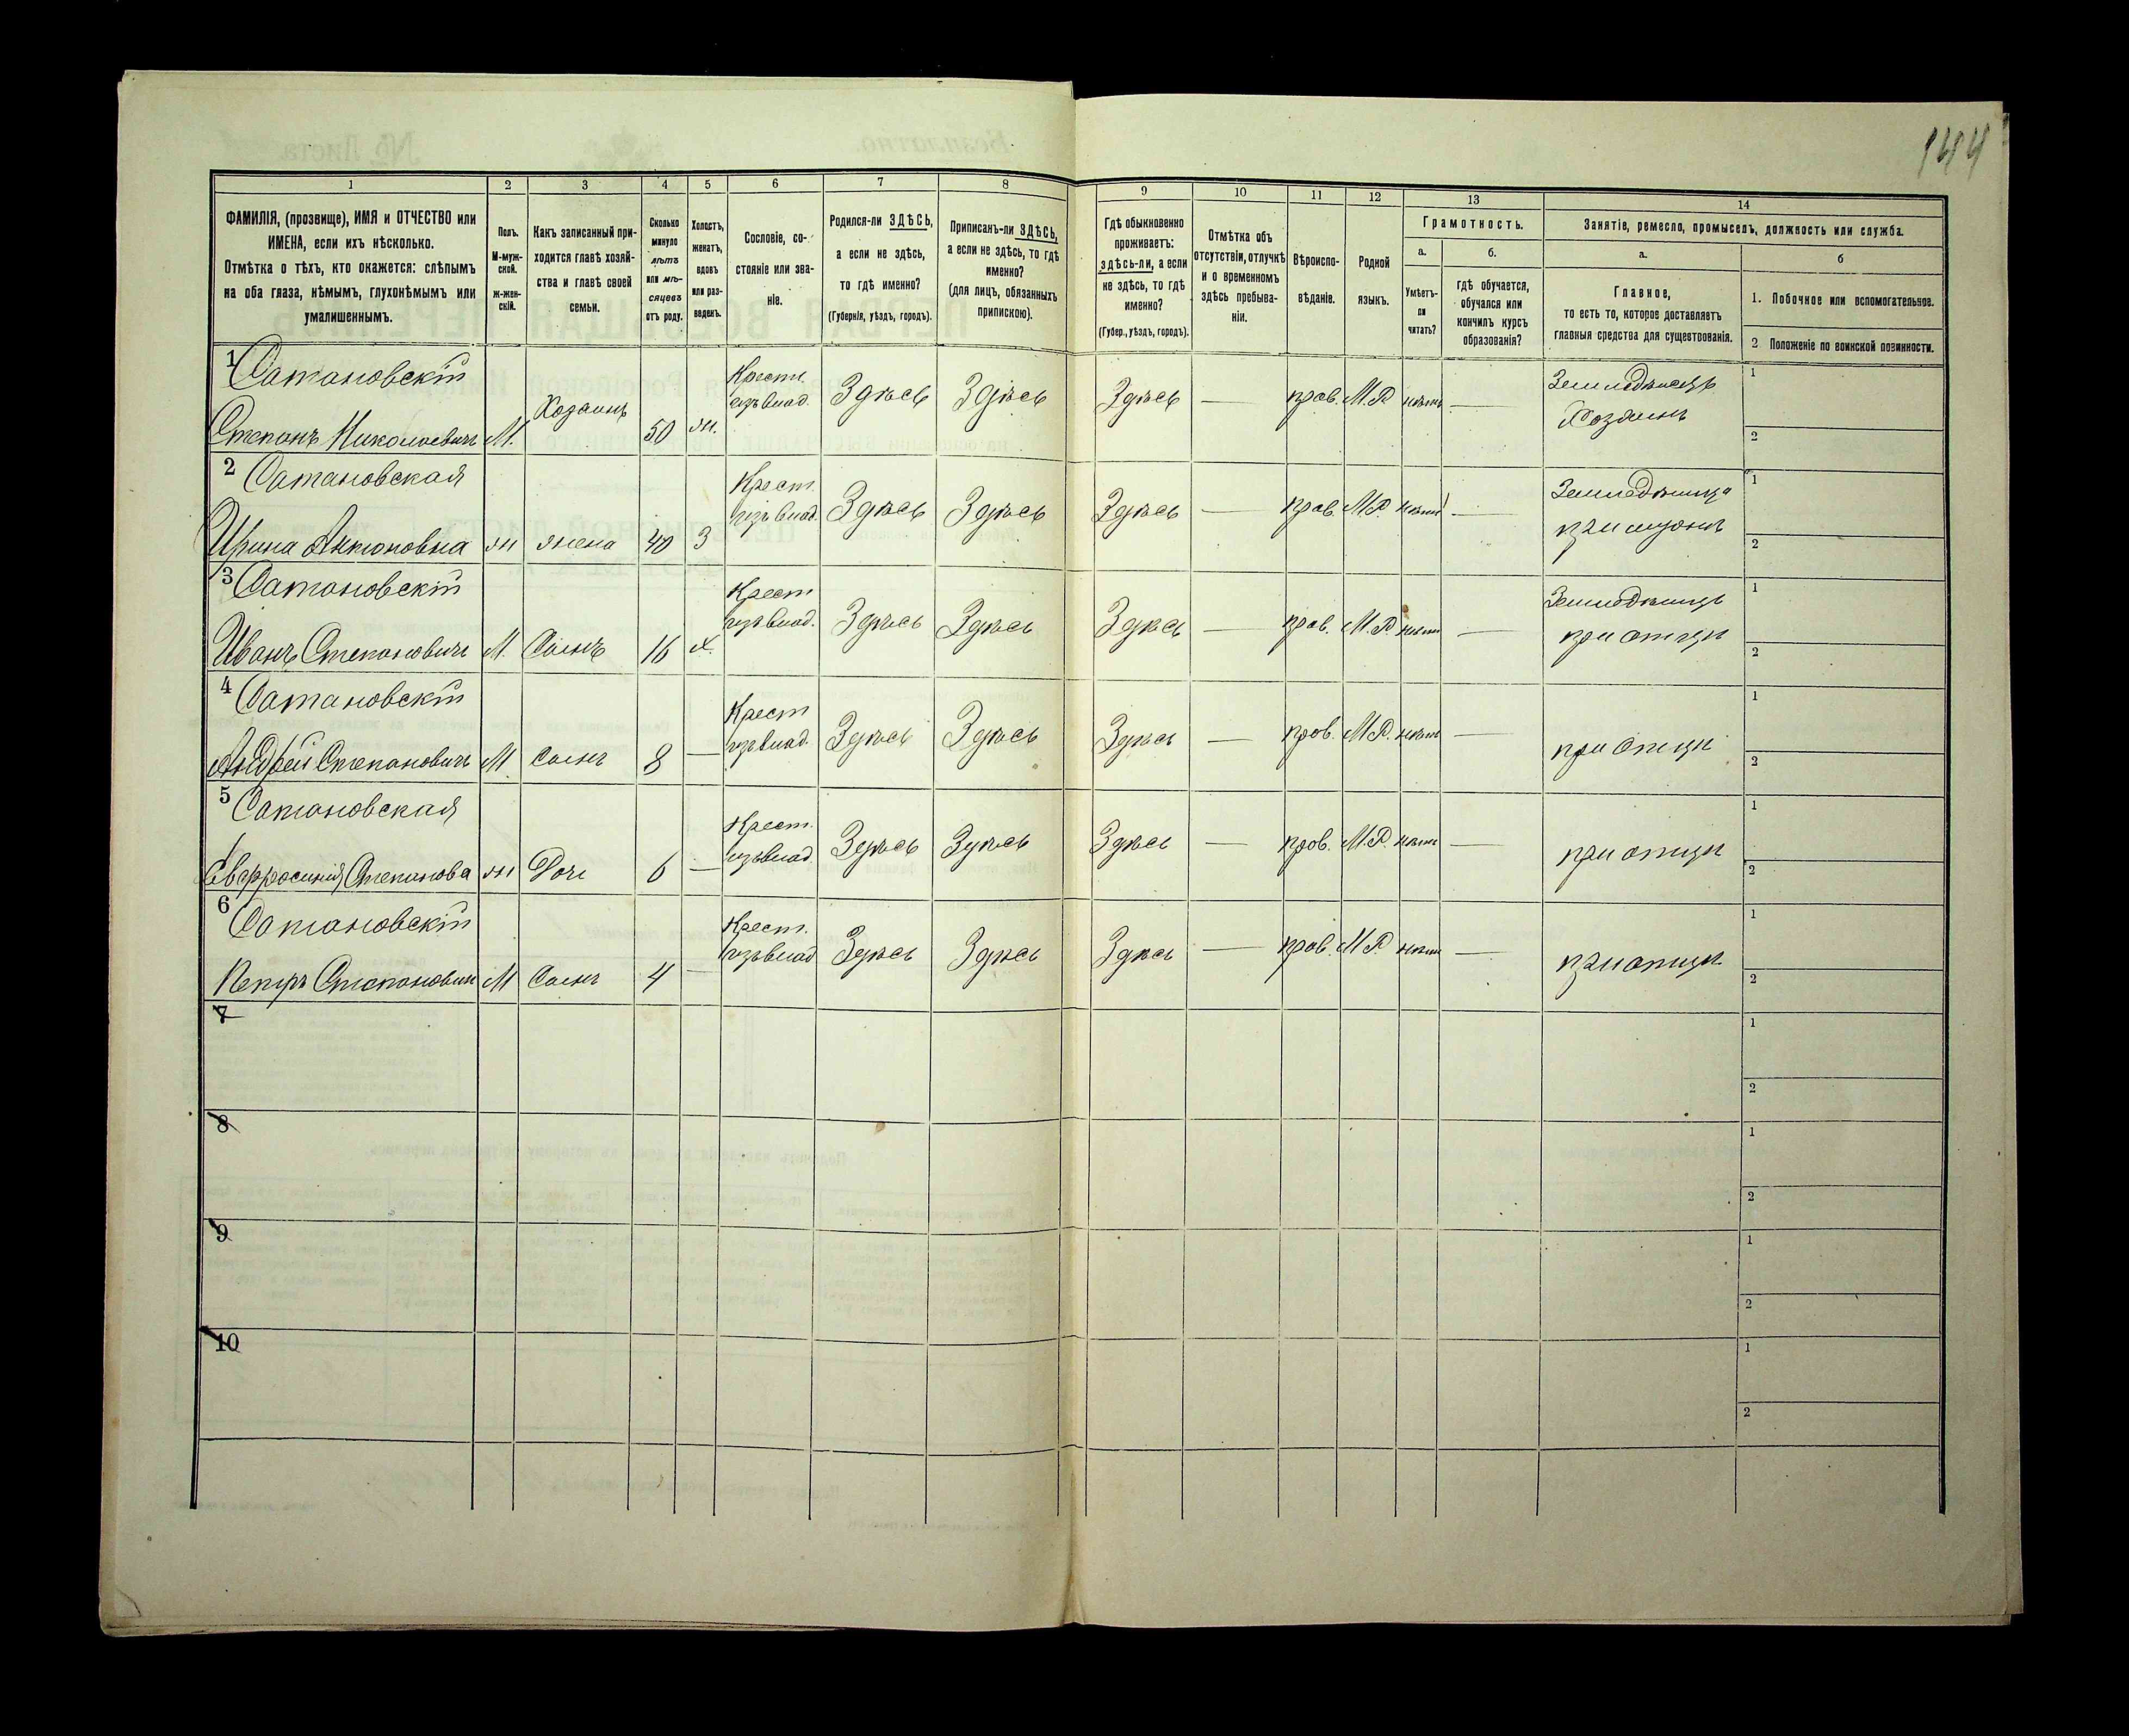 144
1
2
3
4
5
6
7
8
9
10
11
12
13
14
ФАМИЛІЯ, (прозвище), ИМЯ и ОТЧЕСТВО или
ИМЕНА, если ихъ нѣсколько.
Отмѣтка о тѣхъ, кто окажется: слѣпымъ
на оба глаза, нѣмымъ, глухонѣмымъ или
умалишеннымъ.
Полъ.
М-муж-
ской.
Ж-жен-
скій.
Какъ записанный при-
ходится главѣ хозяй-
ства и главѣ своей
семьи.
Сколько
минуло
лѣтъ
или мѣ-
сяцевъ
отъ роду.
Холостъ,
женатъ,
вдовъ
или раз-
веденъ.
Сословіе, со-
стояніе или зва-
ніе.
Родился-ли ЗДѢСЬ,
а если не здѣсь,
то гдѣ именно?
(Губернія, уѣздъ, городъ).
Приписанъ-ли ЗДѢСЬ,
а если не здѣсь, то гдѣ
именно?
(для лицъ, обязанныхъ
припискою).
Гдѣ обыкновенно
проживаетъ:
здѣсь-ли, а если
не здѣсь, то гдѣ
именно?
(Губер., уѣздъ, городъ).
Отмѣтка объ
отсутствіи, отлучкѣ
и о временномъ
здѣсь пребыва-
ніи.
Вѣроиспо-
вѣданіе.
Родной
языкъ.
Грамотность.
а.
Умѣетъ-
ли
читать?
б.
гдѣ обучается,
обучался или
кончилъ курсъ
образованія?
Занятіе, ремесло, промыселъ, должность или служба.
а.
Главное,
то есть то, которое доставляетъ
главныя средства для существованія.
б
1. Побочное или вспомогательное.
2 Положеніе по воинской повинности.
1 Сатановскій
Степанъ Николаевичъ М. Хозяинъ 50 ж. Крест. изъ влад. Здѣсь Здѣсь Здѣсь — прав. М.Р. нѣтъ — Земледѣлецъ Хозяинъ 1 2
2 Сатановская
Ирина Антоновна ж жена 40 З Крест. изъ влад. Здѣсь Здѣсь Здѣсь — прав. М.Р. нѣтъ — 1 2
3 Сатановскій
Иванъ Степановичъ М. Сынъ 16 х. Крест изъ влад. Здѣсь Здѣсь Здѣсь — прав. М.Р. нѣтъ — Земледѣлецъ при отцѣ 1 2
4 Сатановскій
Андрей Степановичъ М Сынъ 8 — Крест изъ влад. Здѣсь Здѣсь Здѣсь — прав. М.Р. нѣтъ — при отцѣ 1 2
5 Сатановская
Степанова ж Дочь 6 — Крест. изъ влад. Здѣсь Здѣсь Здѣсь — прав. М.Р. нѣтъ — при отцѣ 1 2
6 Сатановскій
Петръ Степановичъ М Сынъ 4 — Крест. изъ влад Здѣсь Здѣсь Здѣсь — прав. М.Р. нѣтъ — при отцѣ 1 2
7 1 2
8 1 2
9 1 2
10 1 2